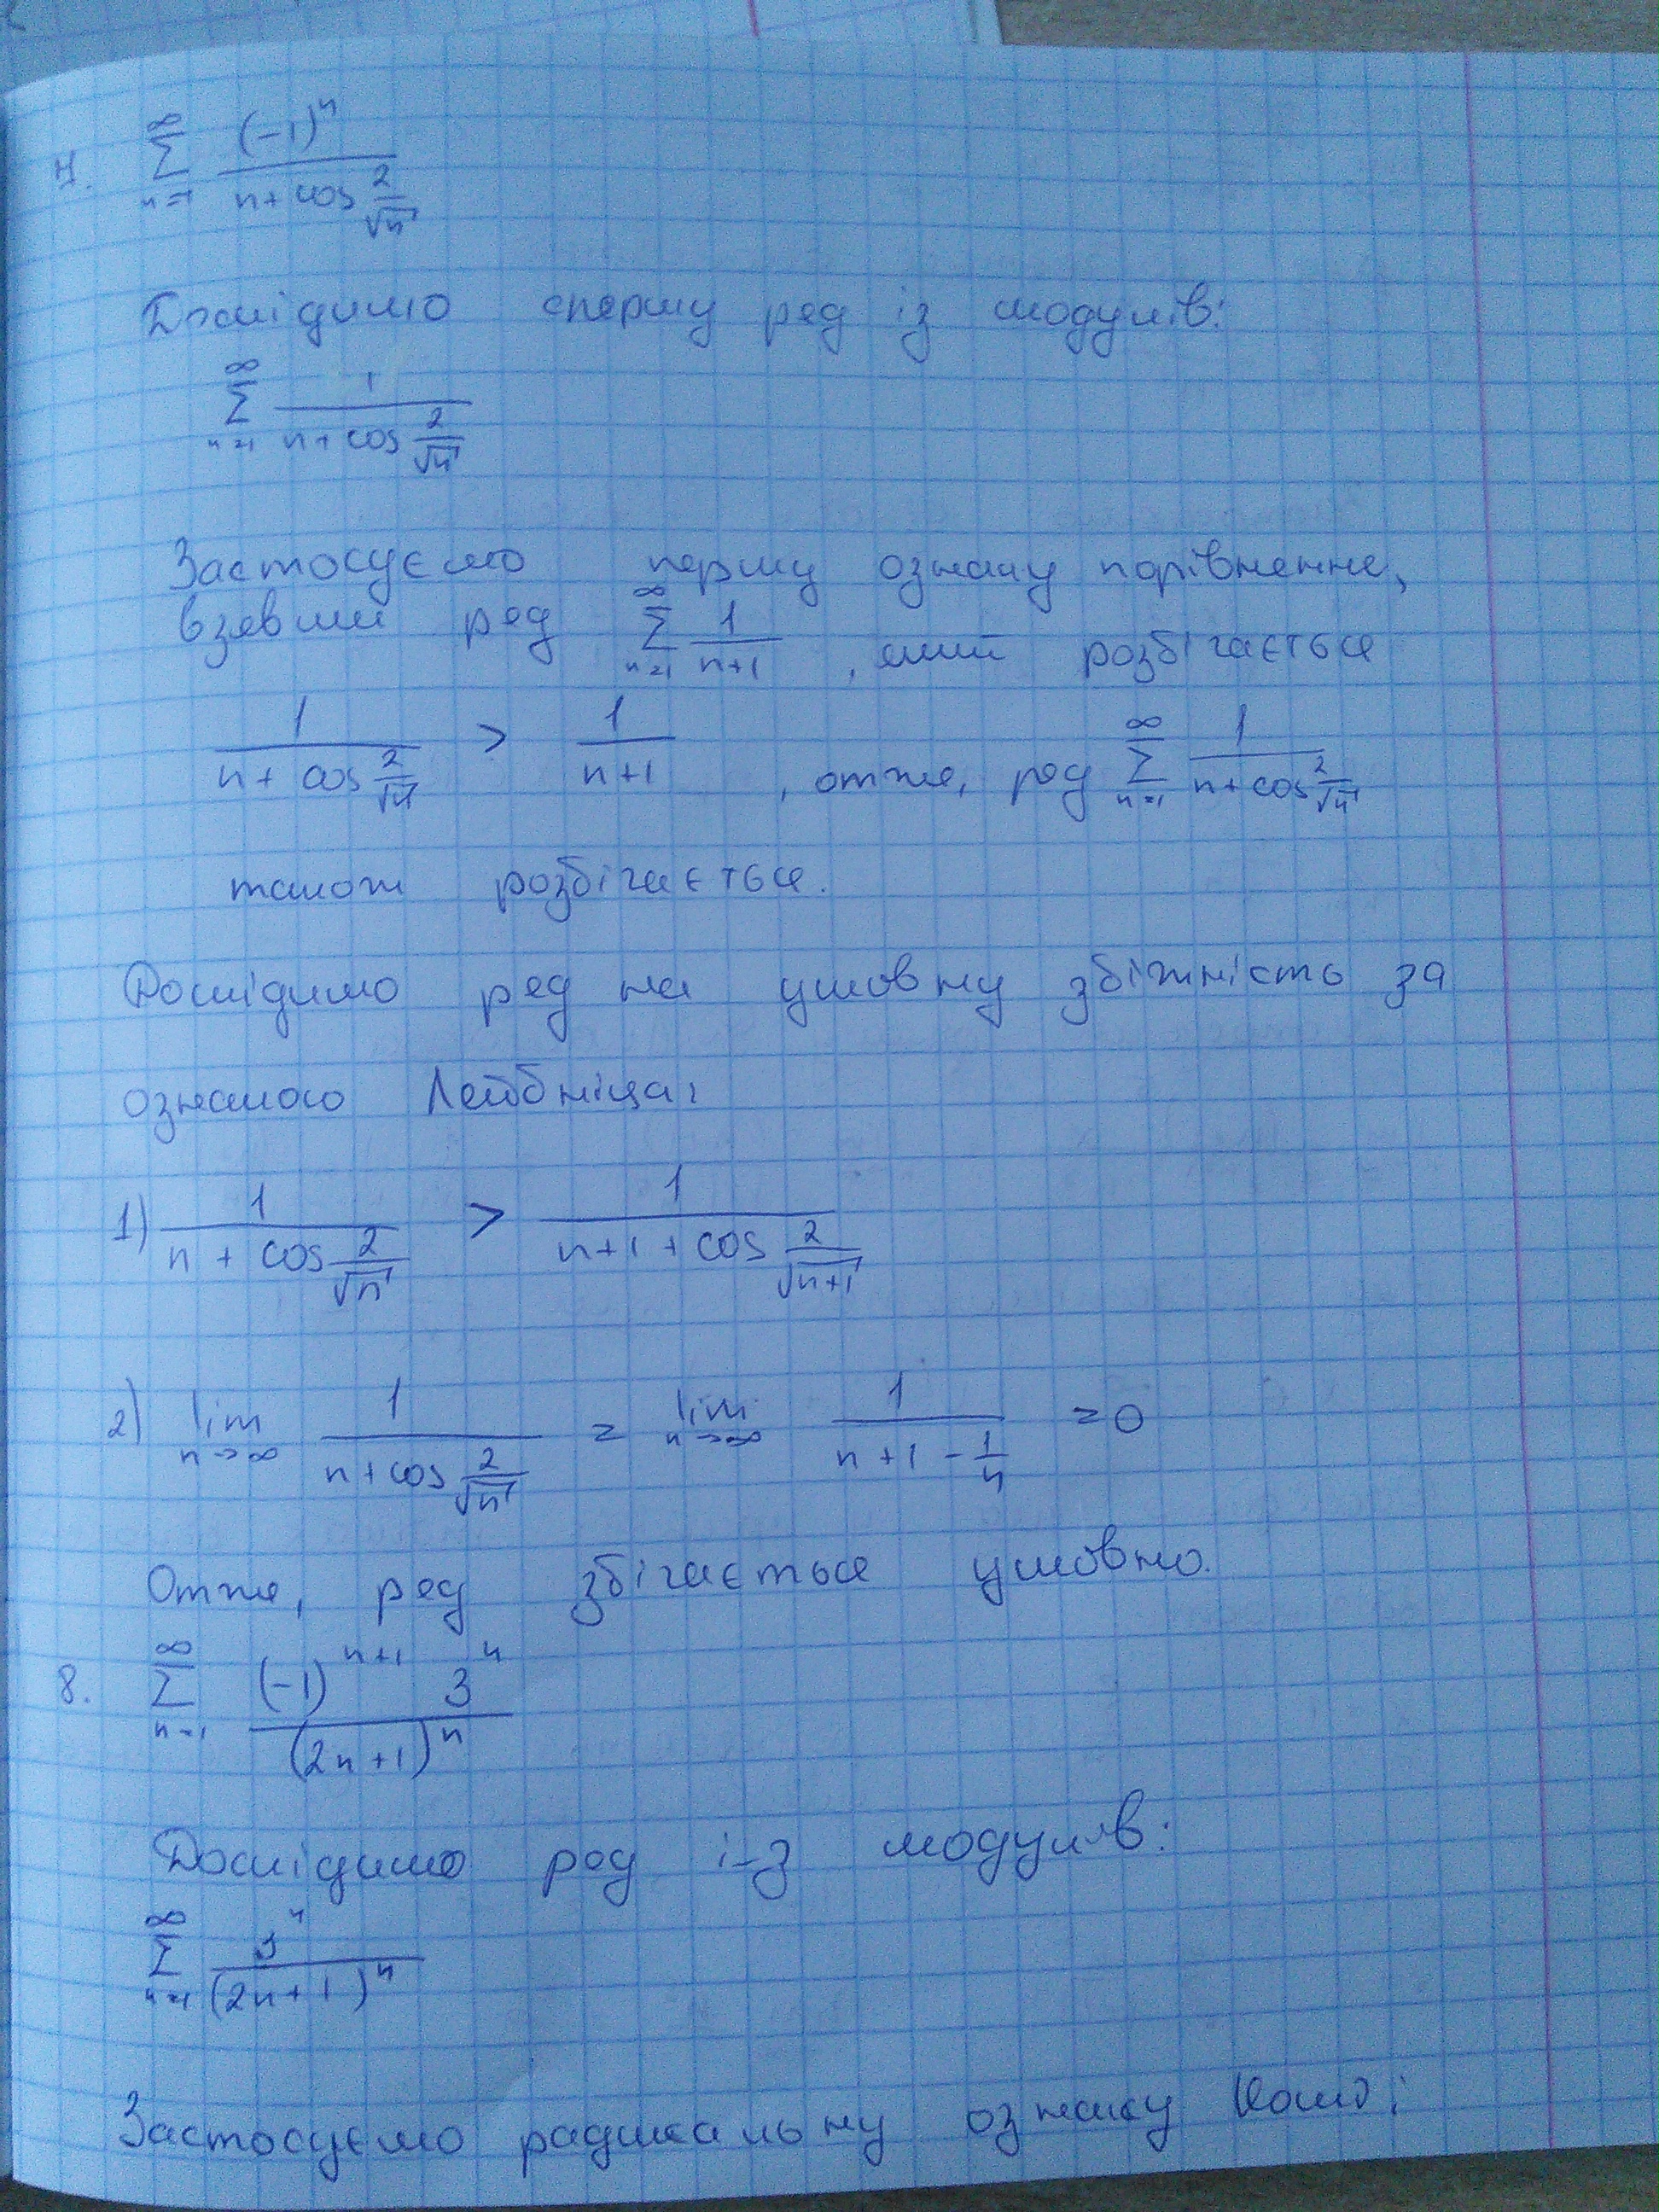 7. \sum_{n=1}^{\infty} \frac{(-1)^n}{n+\cos\frac{2}{\sqrt{n}}}
Дослідимо спершу ряд із модулів:
\sum_{n=1}^{\infty} \frac{1}{n+\cos\frac{2}{\sqrt{n}}}
Застосуємо першу ознаку порівняння,
взявши ряд \sum_{n=1}^{\infty} \frac{1}{n+1}, який розбігається
\frac{1}{n+\cos\frac{2}{\sqrt{n}}} > \frac{1}{n+1}, отже, ряд \sum_{n=1}^{\infty} \frac{1}{n+\cos\frac{2}{\sqrt{n}}}
також розбігається.
Дослідимо ряд на умовну збіжність за
ознакою Лейбніца:
1) \frac{1}{n+\cos\frac{2}{\sqrt{n}}} > \frac{1}{n+1+\cos\frac{2}{\sqrt{n+1}}}
2) \lim_{n\to\infty} \frac{1}{n+\cos\frac{2}{\sqrt{n}}} = \lim_{n\to\infty} \frac{1}{n+1-\frac{1}{n}} = 0
Отже, ряд збігається умовно.
8. \sum_{n=1}^{\infty} \frac{(-1)^{n+1} 3^n}{(2n+1)^n}
Дослідимо ряд і-з модулів:
\sum_{n=1}^{\infty} \frac{3^n}{(2n+1)^n}
Застосуємо радикальну ознаку Коші: